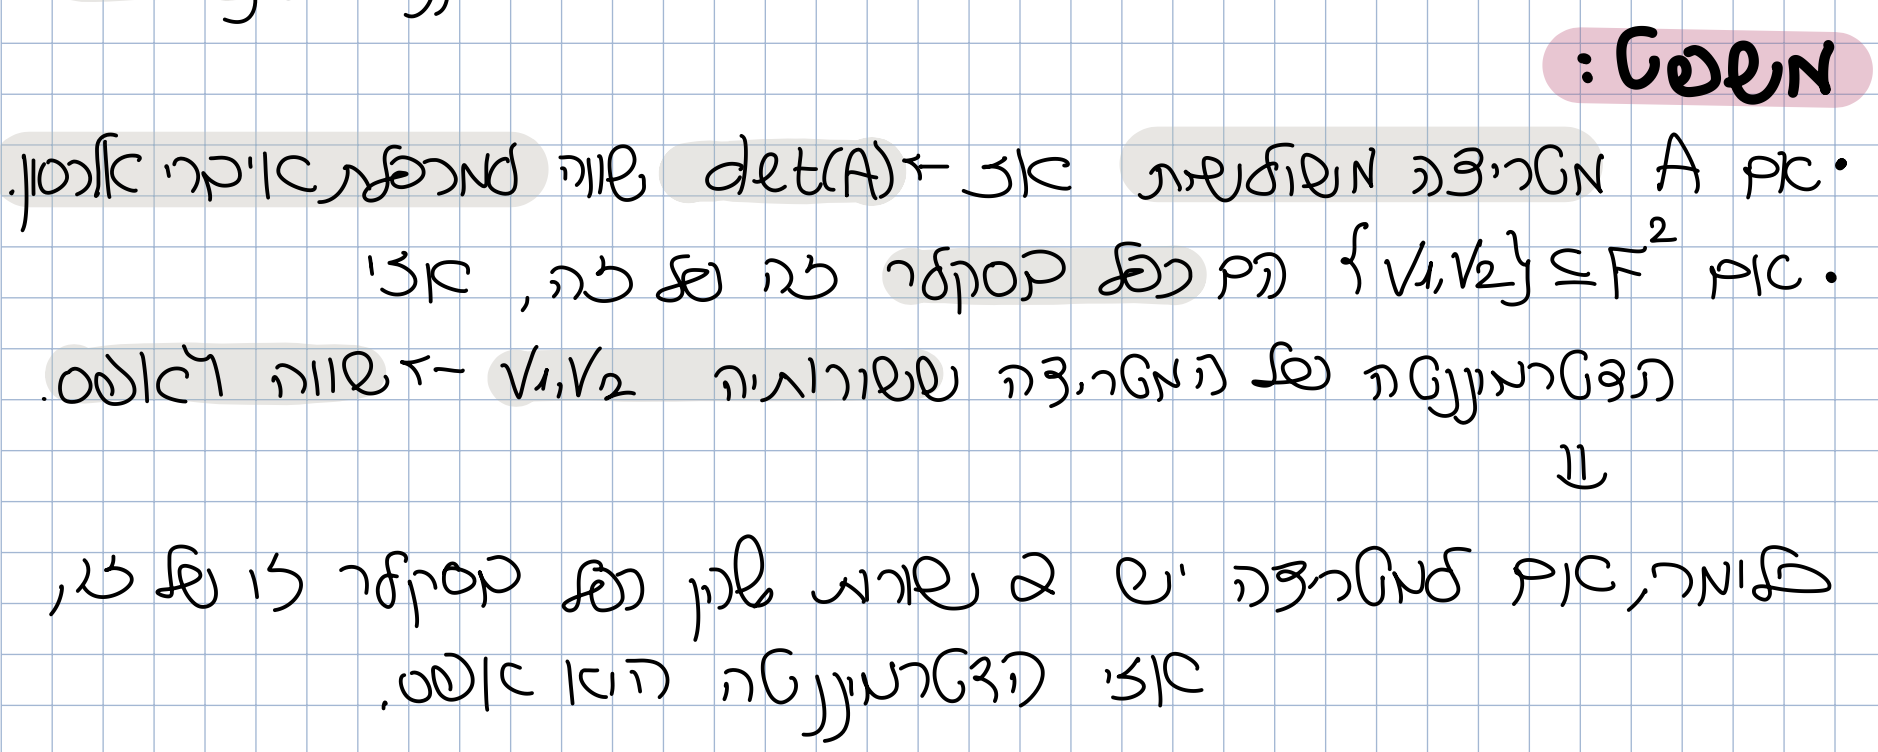 משפט:
• אם A מטריצה משולשית אז ← det(A) שווה למכפלת איברי אלכסון.
• אם {V1,V2} ⊆ F² הם כפל בסקלר זה של זה, אזי
הדטרמיננטה של המטריצה ששורותיה V1,V2 ← שווה לאפס.
⇓
כלומר, אם למטריצה יש 2 שורות שהן כפל בסקלר זו של זו,
אזי הדטרמיננטה היא אפס.